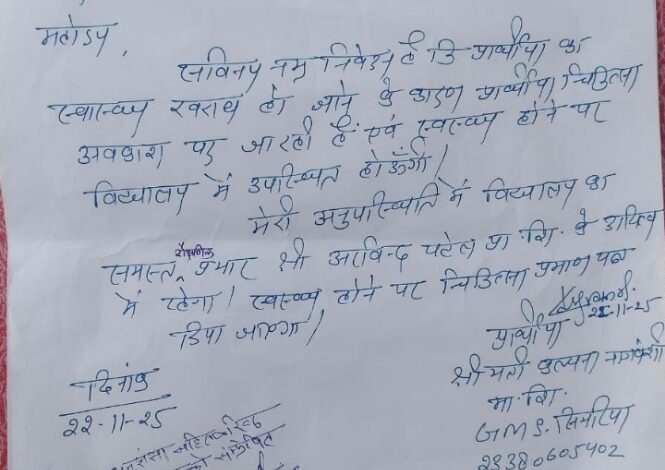 महोदय,
सविनय नम्र निवेदन है कि प्रार्थीया का
स्वास्थ्य खराब हो जाने के कारण प्रार्थीया चिकित्सा
अवकाश पर जा रही हैं एवं स्वस्थ्य होने पर
विद्यालय में उपस्थित होऊँगी।
मेरी अनुपस्थिति में विद्यालय का
समस्त शैक्षणिक प्रभार श्री अरविन्द पटेल प्रा.शि. के दायित्व
में रहेगा। स्वस्थ्य होने पर चिकित्सा प्रमाण पत्र
दिया जाएगा।
22-11-25
प्रार्थीया
श्री मती कल्पना नागवंशी
मा.शि.
G.M.S. सिमरिया
23380605402
दिनांक
22-11-25